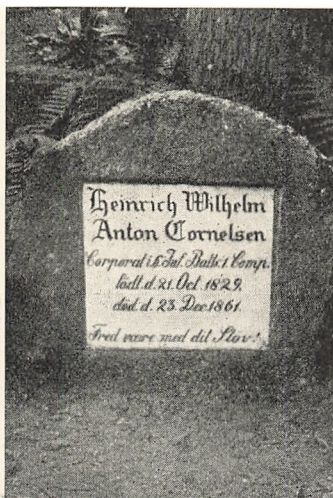 Heinrich Wilhelm
Anton Cornelsen
Corporal i 5. Inf. Batls 1. Comp.
födt d. 21. Oct. 1829.
död d. 23. Dec 1861.
Fred være med dit Stöv!